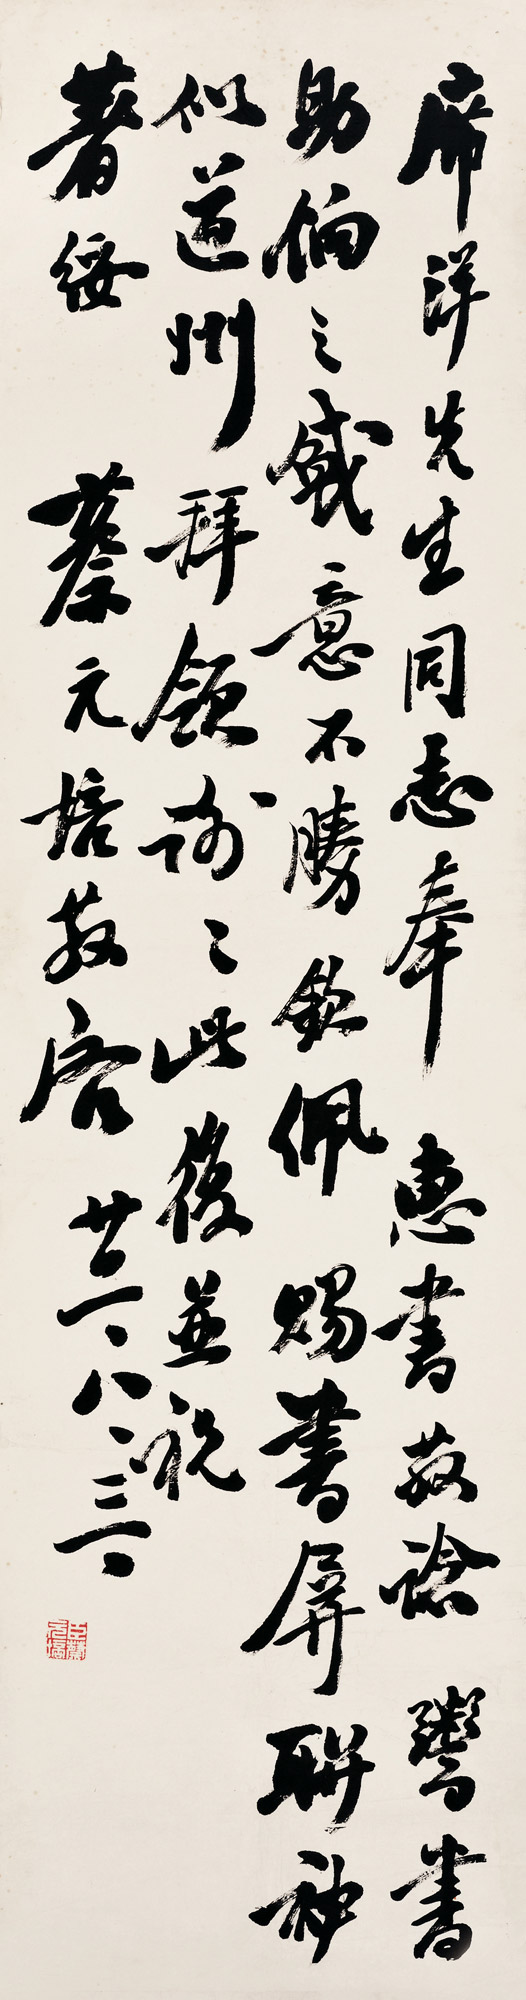 席洋先生同志奉惠書敬諗鬻書
助餉之盛意不勝欽佩賜書屏聯神
似道州拜領謝〻此復並祝
著綏 蔡元培敬啓 廿一、八、三一、